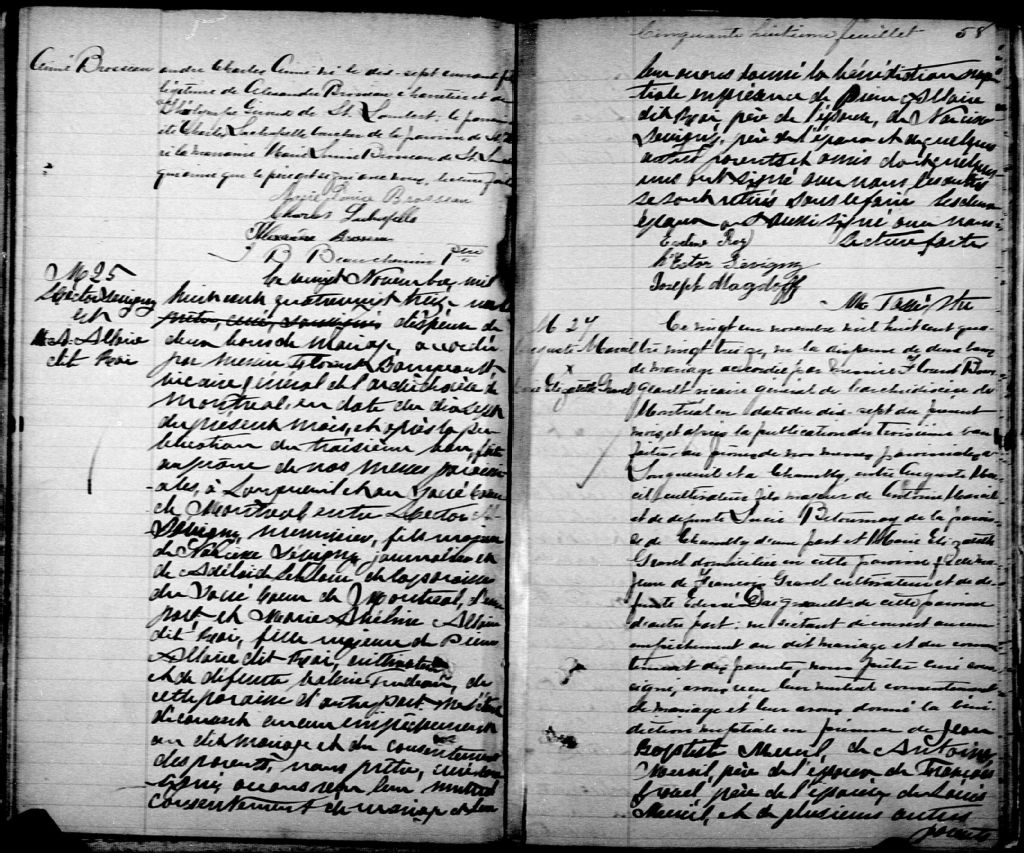 Aimé Brosseau
andre Charles Aimé né le dix-sept courant fils
légitime de Alexandre Brosseau charretier et de
Giroux de St. Lambert: le parrain a
été Charles Lachapelle boucher de la paroisse de St.
la marraine Marie Louise Brosseau de St.
qui ainsi que le père ont signé avec nous. Lecture faite
Marie Louise Brosseau
Charles Lachapelle
Alexandre Brosseau
J B Beauchemin Ptre
M 25
Hector Sevigny
et
M. A. Allaire
dit Roi
Le vingt Novembre mil
huit cent quatrevingt treize, nous
prêtre, curé, soussigné dispense de
deux bans de mariage, accordée
par messire Florent Bourgeault
vicaire général de l'archidiocèse de
Montréal, en date du dix sept
du présent mois, et après la pu-
blication du troisième ban, faite
au prône de nos messes paroissi-
ales, à Longueuil et au Sacré Coeur
de Montréal entre Hector
Sevigny, menuisier, fils majeur
de Narcisse Sevigny journalier et
de Adélaïde Leblanc de la paroisse
du Sacré Coeur de Montréal, d'une
part, et Marie Allaire
dit Roi, fille majeure de Pierre
Allaire dit Roi, cultivateur
et de défunte Valérie Trudeau, de
cette paroisse d'autre part ne s'étant
découvert aucun empêchement
au dit mariage et du consentement
des parents, nous prêtre, curé sous-
signé avons reçu leur mutuel
consentement de mariage et leur
Cinquante huitième feuillet 58
leur avons donné la bénédiction nup-
tiale en présence de Pierre Allaire
dit Roi, père de l'épouse, de Narcisse
Sevigny, père de l'époux et de quelques
autres parents et amis dont quelques
uns ont signé avec nous les autres
se sont retirés sans le faire
époux a aussi signé avec nous
Lecture faite
Roy
Hector Sevigny
Joseph Magdoff
M. Tassé Ptre
M 27
Auguste Marcil
Marie Elizabeth Gravel
Le vingt un novembre mil huit cent qua-
tre vingt treize, vu la dispense de deux bans
de mariage accordée par messire Florent Bour-
geault vicaire général de l'archidiocèse de
Montréal en date du dix-sept du présent
mois, et après la publication du troisième ban
faite, au prône de nos messes paroissiales, à
Longueuil et à Chambly, entre Auguste Mar-
cil, cultivateur fils majeur de Antoine Marcil
et de défunte Lucie Betournay de la parois-
se de Chambly d'une part et Marie Elizabeth
Gravel domiciliée en cette paroisse fille ma-
jeure de François Gravel cultivateur et de dé-
funte Edesse Daigneault de cette paroisse
d'autre part: ne s'étant découvert aucun
empêchement au dit mariage et du consen-
tement des parents, nous prêtre curé sous-
signé, avons reçu leur mutuel consentement
de mariage et leur avons donné la béné-
diction nuptiale en présence de Jean
Baptiste Marcil, de Antoine
Marcil, père de l'époux, de François
Gravel, père de l'épouse, de Louis
Marcil, et de plusieurs autres
parents